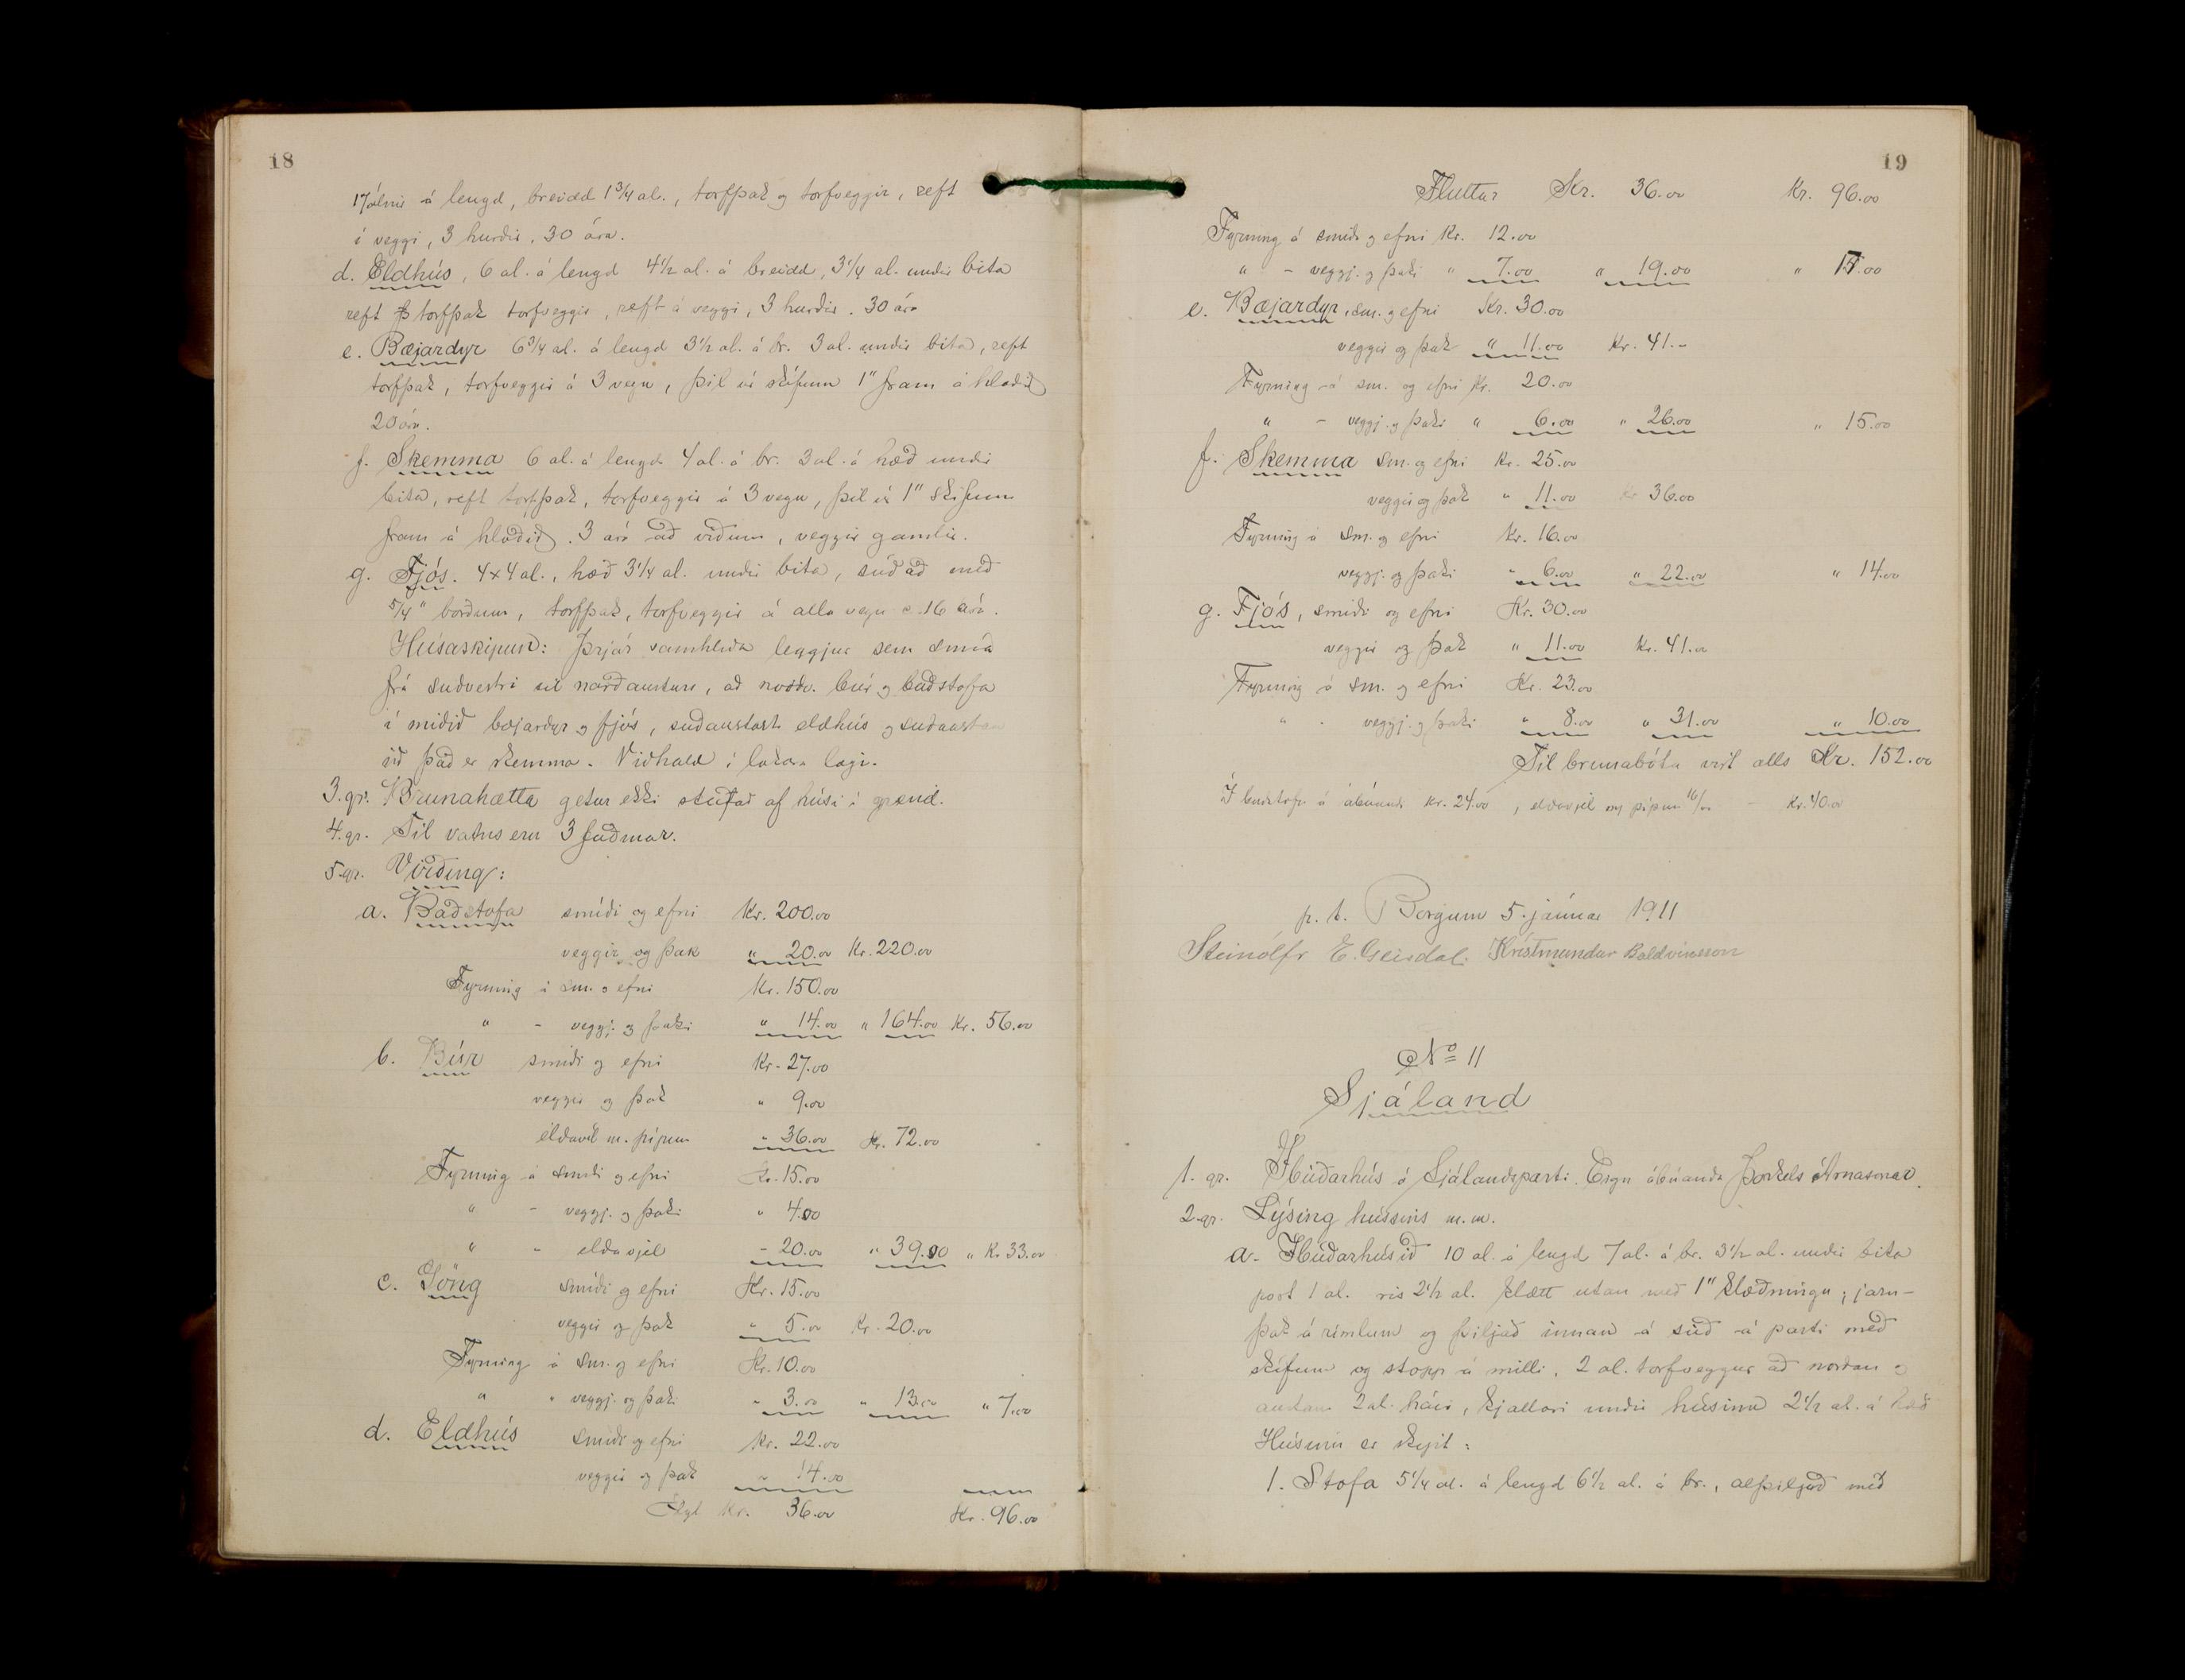 18
17 álnir á lengd, breidd 1 3/4 al., torfþak og torfveggir, reft
á veggi, 3 hurðir, 30 ára.
d. Eldhús, 6 al. á lengd 4 1/2 al. á breidd, 3 1/4 al. undir bita
reft torfþak torfveggir, reft á veggi, 3 hurðir. 30 ára
e. Bæjardyr 6 3/4 al. á lengd 3 1/2 al. á br. 3 al. undir bita, reft
torfþak, torfveggir á 3 vegu, þil úr skífum 1" fram á hlaðið
20 ára.
f. Skemma 6 al. á lengd 4 al. á br. 3 al. á hæð undir
bita, reft torfþak, torfveggir á 3 vegu, þil úr 1" skífum
fram á hlaðið. 3 ára að viðum, veggir gamlir.
g. Fjós. 4x4 al., hæð 3 1/4 al. undir bita, súðað með
5/4" borðum, torfþak, torfveggir á alla vegu c. 16 ára.
Húsaskipun: Þrjár samhliða leggjur sem snúa
frá suðvestri til norðausturs, að norðv. búr og baðstofa
í miðið bæjardyr og fjós, suðaustast eldhús og suðaustan
við það er skemma. Viðhald í lakara lagi.
3. gr. Brunahætta getur ekki stafað af húsi í grend.
4. gr. Til vatns eru 3 faðmar.
5. gr. Virðing:
a. Baðstofa smíði og efni Kr. 200.00
veggir og þak " 20.00 Kr. 220.00
Fyrning á sm. og efni Kr. 150.00
" - veggj. og þaki " 14.00 " 164.00 Kr. 56.00
b. Búr smíði og efni Kr. 27.00
veggir og þak " 9.00
eldavél m. pípum " 36.00 Kr. 72.00
Fyrning á smíði og efni Kr. 15.00
" - veggj. og þaki " 4.00
" - eldavjel - 20.00 " 39.00 " Kr 33.00
c. Göng smíði og efni Kr. 15.00
veggir og þak " 5.00 Kr. 20.00
Fyrning á sm. og efni Kr. 10.00
" " veggj. og þaki " 3.00 " 13.00 " 7.00
d. Eldhús smíði og efni Kr. 22.00
veggir og þak " 14.00
Kr. 36.00 Kr. 96.00
19
Fluttar Kr. 36.00 Kr. 96.00
Fyrning á smíði og efni Kr. 12.00
" - veggj. og þaki " 7.00 " 19.00 " 17.00
e. Bæjardyr, sm. og efni Kr. 30.00
veggir og þak " 11.00 Kr. 41.-
Fyrning á sm. og efni Kr. 20.00
" - veggj. og þaki " 6.00 " 26.00 " 15.00
f. Skemma sm. og efni Kr. 25.00
veggir og þak " 11.00 Kr 36.00
Fyrning á sm. og efni Kr. 16.00
veggj. og þaki " 6.00 " 22.00 " 14.00
g. Fjós, smíði og efni Kr. 30.00
veggir og þak " 11.00 Kr. 41.00
Fyrning á sm. og efni Kr. 23.00
" - veggj. og þaki " 8.00 " 31.00 " 10.00
Til brunabóta virt alls Kr. 152.00
Í baðstofu á ábúandi Kr. 24.00, eldavjel og pípur - Kr. 40.00
p. t. Borgum 5. janúar 1911
Steinólfr E. Geirdal. Kristmundur Baldvinsson
No 11
Sjáland
1. gr. Íbúðarhús á Sjálandsparti. Eign ábúanda Þorkels Árnasonar.
2. gr. Lýsing hússins m. m.
a. Íbúðarhúsið 10 al. á lengd 7 al. á br. 3 1/2 al. undir bita
port 1 al. ris 2 1/2 al. klætt utan með 1" klæðningu; jarn-
þak á rimlum og þiljað innan á súð á parti með
skífum og stopp á milli. 2 al. torfveggur að norðan og
austan 2 al. háir, kjallari undir húsinu 2 1/2 al. á hæð
Húsinu er skipt:
1. Stofa 5 1/4 al. á lengd 6 1/2 al. á br., alþiljuð með